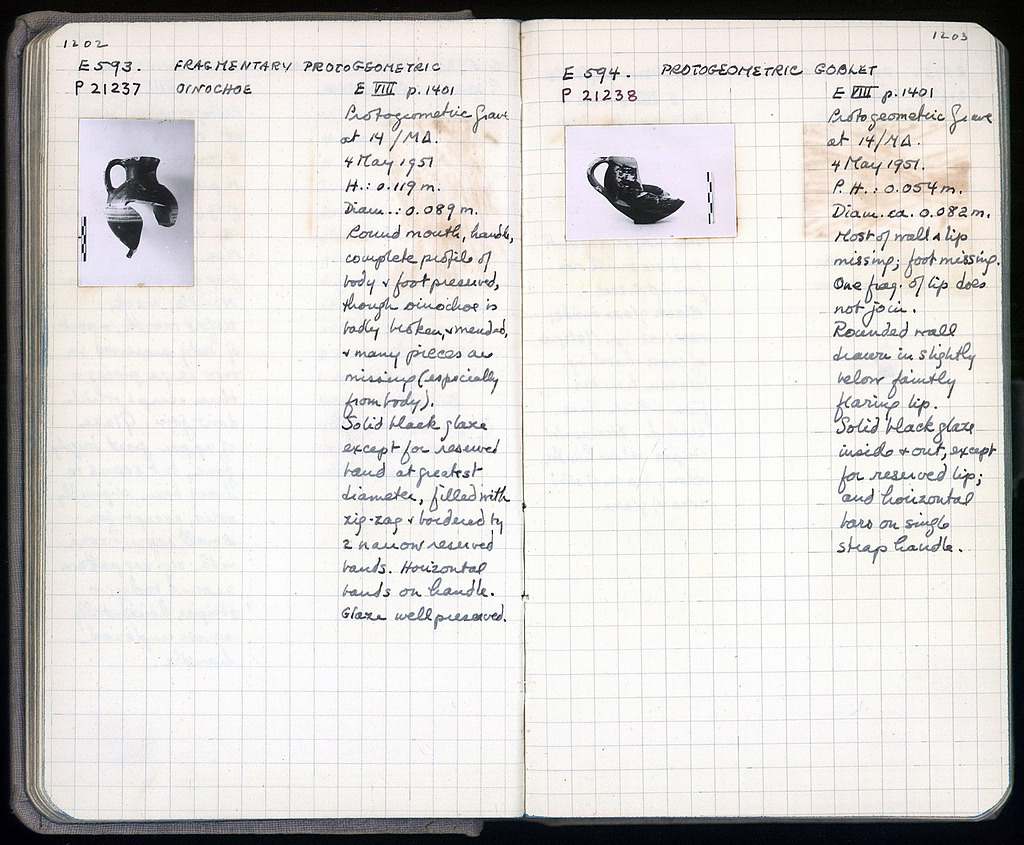 1202
E 593. FRAGMENTARY PROTOGEOMETRIC
P 21237 OINOCHOE E VIII p. 1401
Protogeometric Grave
at 14/ΜΔ.
4 May 1951
H.: 0.119 m.
Diam.: 0.089 m.
Round mouth, handle,
complete profile of
body & foot preserved,
though oinochoe is
badly broken, & mended,
& many pieces are
missing (especially
from body).
Solid black glaze
except for reserved
band at greatest
diameter, filled with
zig-zag & bordered by
2 narrow reserved
bands. Horizontal
bands on handle.
Glaze well preserved.
1203
E 594. PROTOGEOMETRIC GOBLET
P 21238 E VIII p. 1401
Protogeometric Grave
at 14/ΜΔ.
4 May 1951.
P.H.: 0.054 m.
Diam. ca. 0.082 m.
Most of wall & lip
missing; foot missing.
One frag. of lip does
not join.
Rounded wall
drawn in slightly
below faintly
flaring lip.
Solid black glaze
inside & out, except
for reserved lip;
and horizontal
bars on single
strap handle.